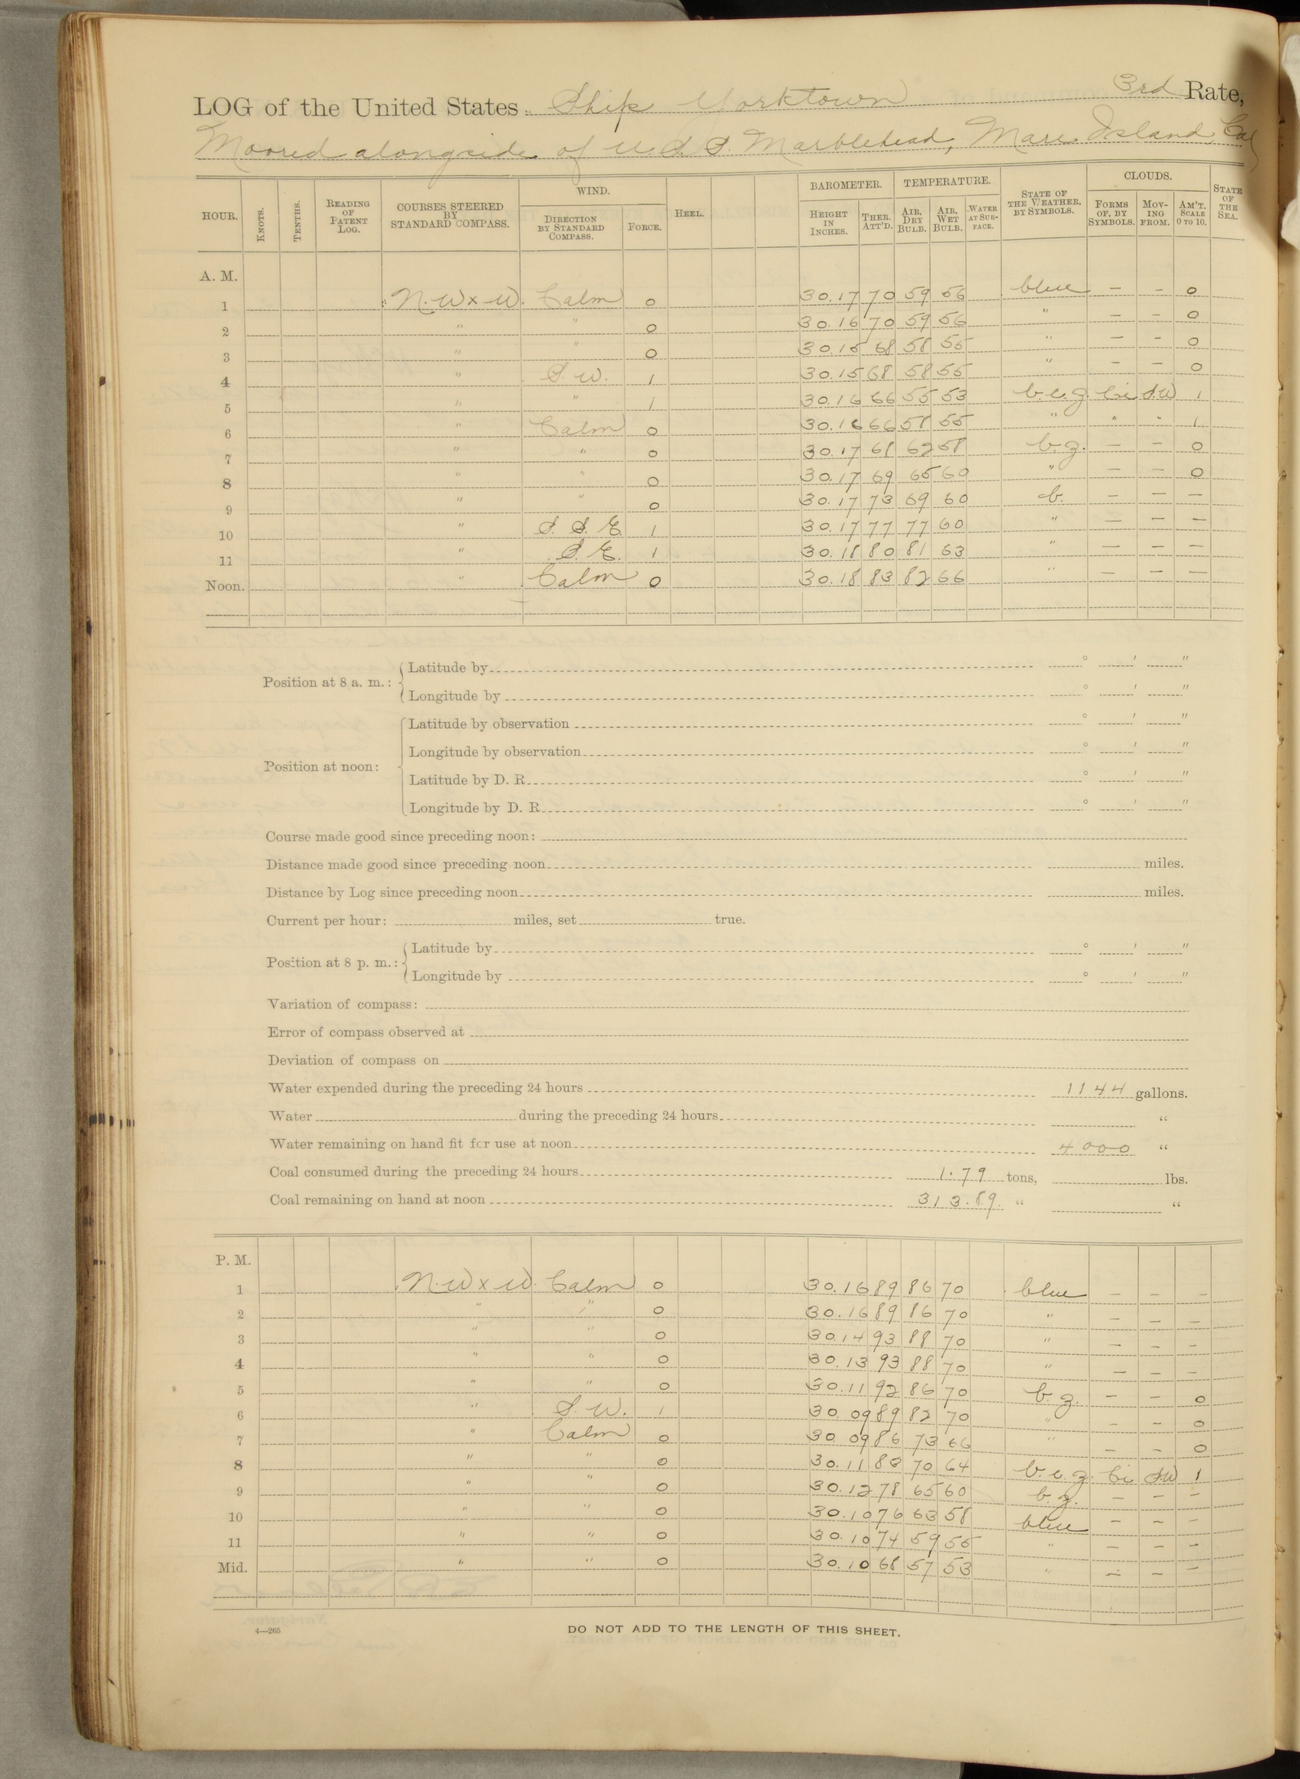 LOG of the United States Ship Yorktown 3rd Rate,
Moored alongside of U.S.S. Marblehead, Mare Island, Cal
HOUR. KNOTS. TENTHS. READING OF PATENT LOG. COURSES STEERED BY STANDARD COMPASS. WIND. DIRECTION BY STANDARD COMPASS. FORCE. HEEL. BAROMETER. HEIGHT IN INCHES. THER. ATT'D. TEMPERATURE. AIR, DRY BULB. AIR, WET BULB. WATER AT SURFACE. STATE OF THE WEATHER, BY SYMBOLS. CLOUDS. FORMS OF, BY SYMBOLS. MOVING FROM. AM'T. SCALE 0 TO 10. STATE OF THE SEA.
A. M.
1 N.W x W. Calm 0 30.17 70 59 56 blue — - 0
2 " " 0 30.16 70 59 56 " — - 0
3 " " 0 30.15 68 58 55 " — - 0
4 " S.W. 1 30.15 68 58 55 " — - 0
5 " " 1 30.16 66 55 53 b.c.z. Ci SW 1
6 " Calm 0 30.16 66 58 55 " " " 1
7 " " 0 30.17 68 62 58 b.z. — — 0
8 " " 0 30.17 69 65 60 " — — 0
9 " " 0 30.17 73 69 60 b. — — —
10 " S.S.E 1 30.17 77 77 60 " — — —
11 " S.E. 1 30.18 80 81 63 " — — —
Noon. " Calm 0 30.18 83 82 66 " — — —
Position at 8 a. m.: Latitude by ° ' "
Longitude by ° ' "
Position at noon: Latitude by observation ° ' "
Longitude by observation ° ' "
Latitude by D. R. ° ' "
Longitude by D. R. ° ' "
Course made good since preceding noon:
Distance made good since preceding noon miles.
Distance by Log since preceding noon miles.
Current per hour: miles, set true.
Position at 8 p. m.: Latitude by ° ' "
Longitude by ° ' "
Variation of compass:
Error of compass observed at
Deviation of compass on
Water expended during the preceding 24 hours 1144 gallons.
Water during the preceding 24 hours "
Water remaining on hand fit for use at noon 4000 "
Coal consumed during the preceding 24 hours 1.79 tons, lbs.
Coal remaining on hand at noon 313.89. " "
P. M.
1 N.W x W. Calm 0 30.16 89 86 70 blue — — -
2 " " 0 30.16 89 86 70 " — — —
3 " " 0 30.14 93 88 70 " — — —
4 " " 0 30.13 93 88 70 " — — —
5 " " 0 30.11 92 86 70 b.z. — — 0
6 " S.W. 1 30 09 89 82 70 " — — 0
7 " Calm 0 30 09 86 73 66 " — — 0
8 " " 0 30.11 80 70 64 b.c.z. Ci SW 1
9 " " 0 30.12 78 65 60 b.z. — — -
10 " " 0 30.10 76 63 58 blue — — -
11 " " 0 30.10 74 59 55 " — — -
Mid. " " 0 30.10 68 57 53 " — — —
4—265 DO NOT ADD TO THE LENGTH OF THIS SHEET.